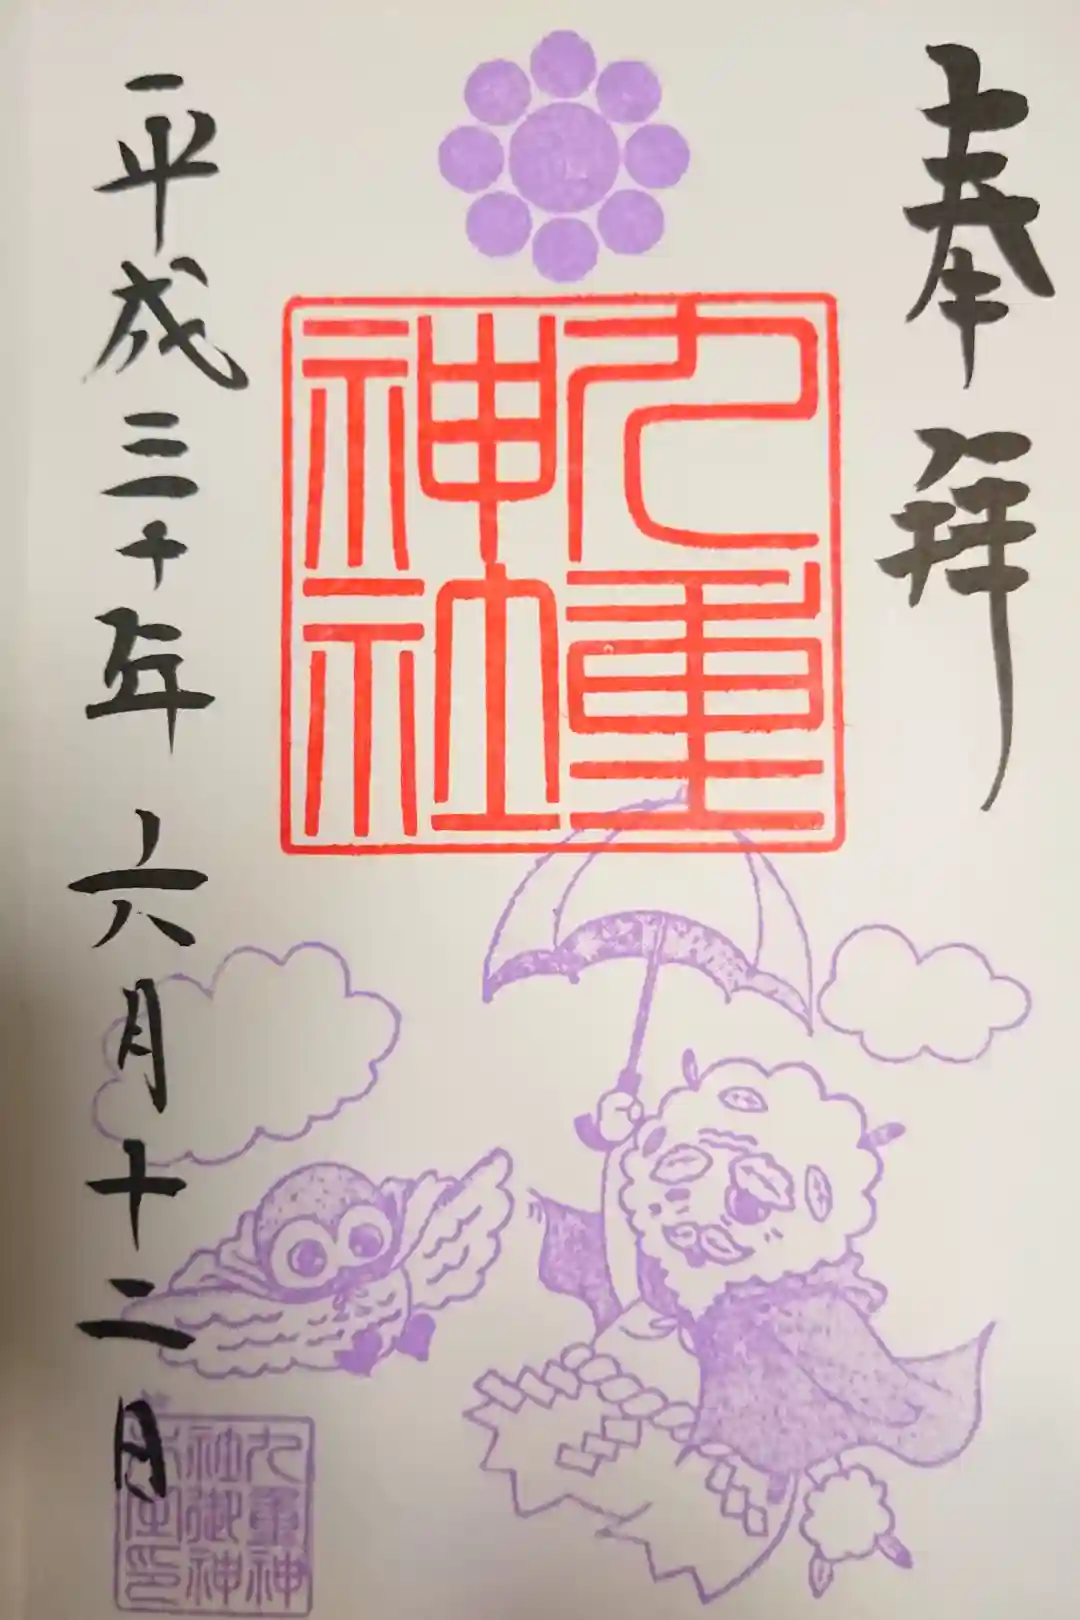 奉拝
九重
神社
平成三十年六月十二日
九重神
社御神
木宝印